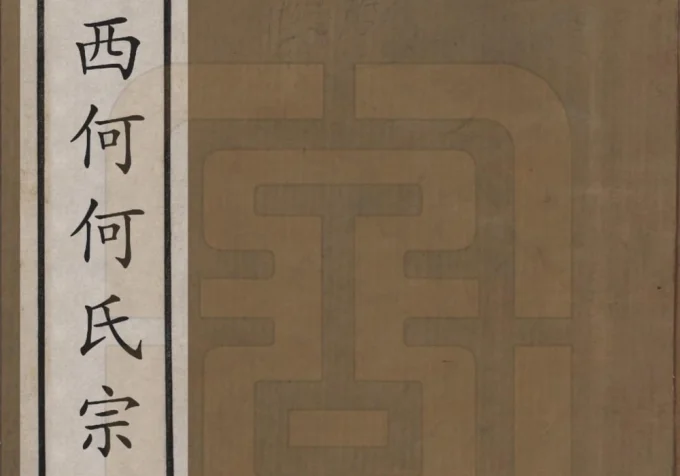 西何何氏宗